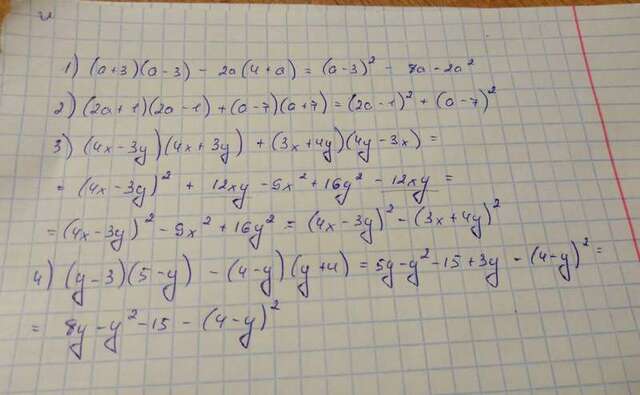 и
1) (a+3)(a-3) - 2a(4+a) = (a-3)² - 8a - 2a²
2) (2a+1)(2a-1) + (a-7)(a+7) = (2a-1)² + (a-7)²
3) (4x-3y)(4x+3y) + (3x+4y)(4y-3x) =
= (4x-3y)² + 12xy - 9x² + 16y² - 12xy =
= (4x-3y)² - 9x² + 16y² = (4x-3y)² - (3x+4y)²
4) (y-3)(5-y) - (4-y)(y+4) = 5y-y²-15+3y - (4-y)² =
= 8y-y²-15 - (4-y)²